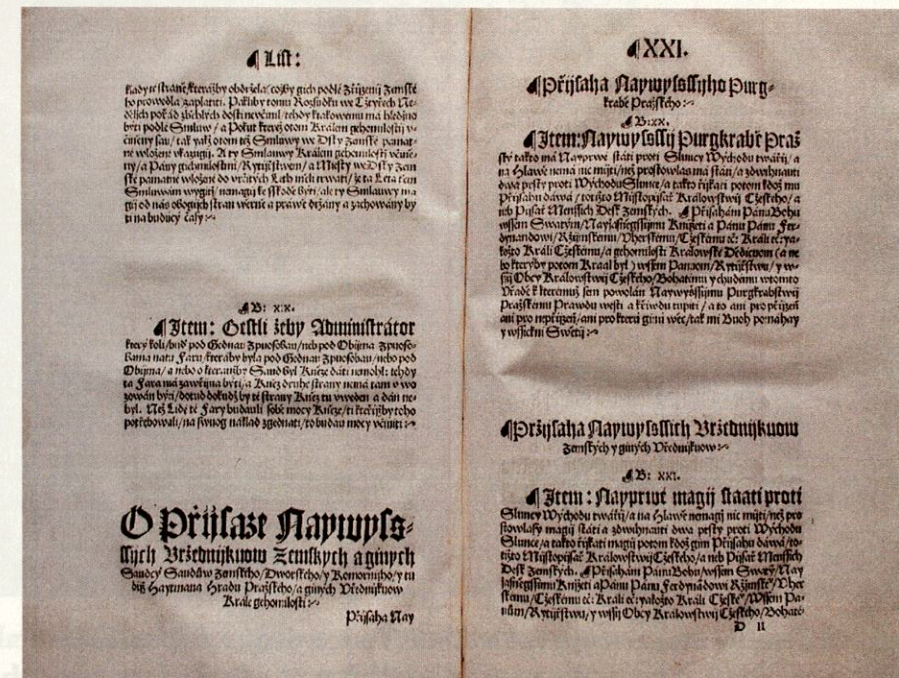 List:
klady te straně/kteražby obdržela/ cožby gich podle Zřijzenij Zemske
ho prowedla/zaplatiti. Pakliby tomu Rozsudku we Cztyřech Ne-
dělijch pořad zběhlých dosti nevčinil/tehdy k takowemu ma hledijno
byti podle Smluw/ a Pokut kterež otom Kralem gehomilostij v-
činieny sau/ tak yakž otom též Smluwy we Dsky Zemske pamat-
ne wložené vkazugij. A ty Smlauwy Kralem gehomilosti včine-
ny/a Pany gichmilostmi/ Rytijřstwem/ a Miesty we Dsky Zem
ske pamatne wložené do vrčitých Leth měli trwati/ že ta Leta tem
Smluwam wygitij/ nemagij ke sskodě byti/ale ty Smlauwy ma
gij od nas obogijch stran wěrně a prawě držany a zachowany by
ti na buducý časy
B: xx.
Item: Gestli žeby Administrátor
který koli/buď pod Gednau Zpuosobau/neb pod Obijma Zpuoso-
bama na tu Faru/kteraby byla pod Gednau Zpuosobau/nebo pod
Obijma/ a nebo o kteraužby Saud byl Knieze dáti nemohl: tehdy
ta Fara má zawřijna býti/ a Kniez druhe strany nemá tam v wo
zowán býti/dotud dokudž by té strany Kniez tu vweden a dán ne-
byl. Než Lidé té Fary budauli sobě mocy Knieze/ti kteřijžby toho
potřebowali/na swuog náklad zgednati/to budau mocy včiniti
O Přijsaze Naywyss-
ssijch Vrzednijkuow Zemskych a ginych
Saudcý Saudůw Zemského/Dworského/y Komornijho/y tu
diž Haytmana Hradu Pražského/a giných Vřednijkuow
Krále gehomilosti
Přijsaha Nay
XXI.
Přijsaha Naywyssssijho Purg-
krabě Pražského
B: xx.
Item: Naywyssssij Purgkrabě Praž
ský takto má Nayprwé státi proti Sluncy Wýchodu twářij/ a
na Hlawě nemá nic mijti/než prostowlas má státi/a zdwihnauti
dwa prsty proti Wýchodu Slunce/a takto řijkati potom když mu
Přijsahu dáwá/ totižto Mistopijsař Kralowstwij Czeského/ a
neb Pijsař Menssich Desk Zemských. Přijsahám Pánu Bohu
wssem Swatým/Nayjasněgssijmu Knijžeti a Pánu Pánu Fer-
dynandowi/Ržijmskemu/Vherskému/Czeskému &c: Krali &c: ya-
kožto Krali Czeskému/a gehomilosti Kralowske Dědicuom (a ne
bo kterýby potom Kraal byl) wssem Panuom/Rytijřstwu/ y w-
ssij Obcy Kralowstwij Czeského/Bohatému y chudému wtomto
Vřadě k kterémuž sem powolán Naywyžssijmu Purgkrabstwij
Pražskému Prawdu westi a křiwdu tupiti/ a to ani pro přijzeň
ani pro nepřijzeň/ani pro kteru ginu wěc/tak mi Buoh pomahay
y wssickni Swětij
Přžijsaha Naywyssssich Vržednijkuow
Zemských y giných Vřednijkuow
B: xxi.
Item: Nayprwé magij staati proti
Sluncy Wýchodu twářij/a na Hlawě nemagij nic mijti/než pro
stowlasy magij státi a zdwihnauti dwa prsty proti Wýchodu
Slunce/a takto řijkati magij potom když gim Přijsahu dáwá/to-
tižto Mijstopijsař Kralowstwij Czeského/a neb Pijsař Menssich
Desk Zemských. Přijsahám Pánu Bohu/wssem Swatým/Nay
jasněgssijmu Knijžeti a Pánu Pánu Ferdynándowi Ržijmské°/Vher
skému/Czeskému &c: Krali &c: yakožto Krali Czeské°/Wssem Pa-
nům/Rytijřstwu/ y wssij Obcy Kralowstwij Czeského/Bohaté-
D ii